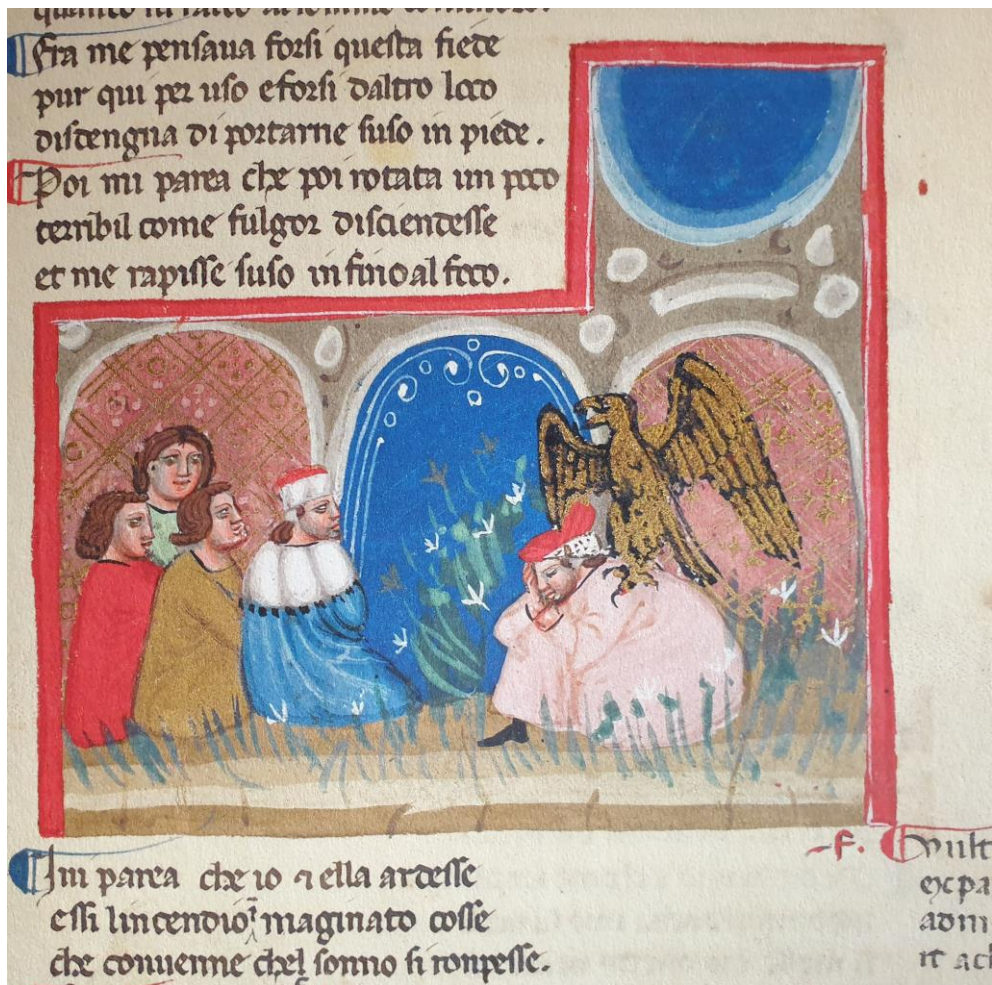 quanto fu ratto al sommo
Fra me pensaua forsi questa fiede
pur qui per uso e forsi daltro loco
discengna di portarne suso in piede.
Poi mi parea che poi rotata un poco
terribil come fulgor disciendesse
et me rapisse suso in fino al foco.
Iui parea che io ⁊ ella ardesse
e si lincendio imaginato cosse
che conuenne chel sonno si ronpesse.
-f.
expa